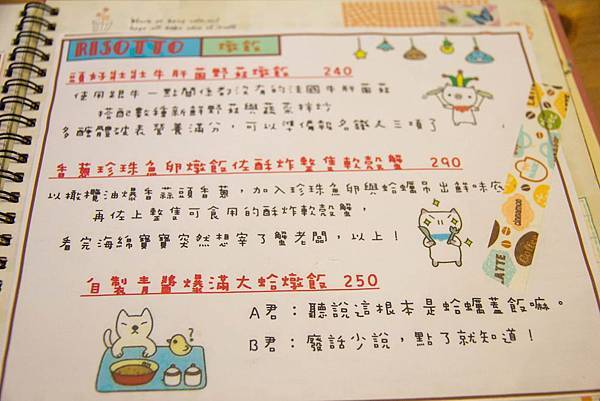 RISOTTO 燉飯
頭好壯壯牛肝菌野菇燉飯 240
使用跟牛一點關係都沒有的法國牛肝菌菇
搭配數種新鮮野菇與蔬菜拌炒
多醣體破表營養滿分，可以準備報名鐵人三項了
香蔥珍珠魚卵燉飯佐酥炸整隻軟殼蟹 290
以橄欖油爆香蒜頭香蔥，加入珍珠魚卵與蛤蠣吊出鮮味底
再佐上整隻可食用的酥炸軟殼蟹，
看完海綿寶寶突然想宰了蟹老闆，以上！
自製青醬爆滿大蛤燉飯 250
A君：聽說這根本是蛤蠣蓋飯嘛。
B君：廢話少說，點了就知道！
?
LATTE
LATTE